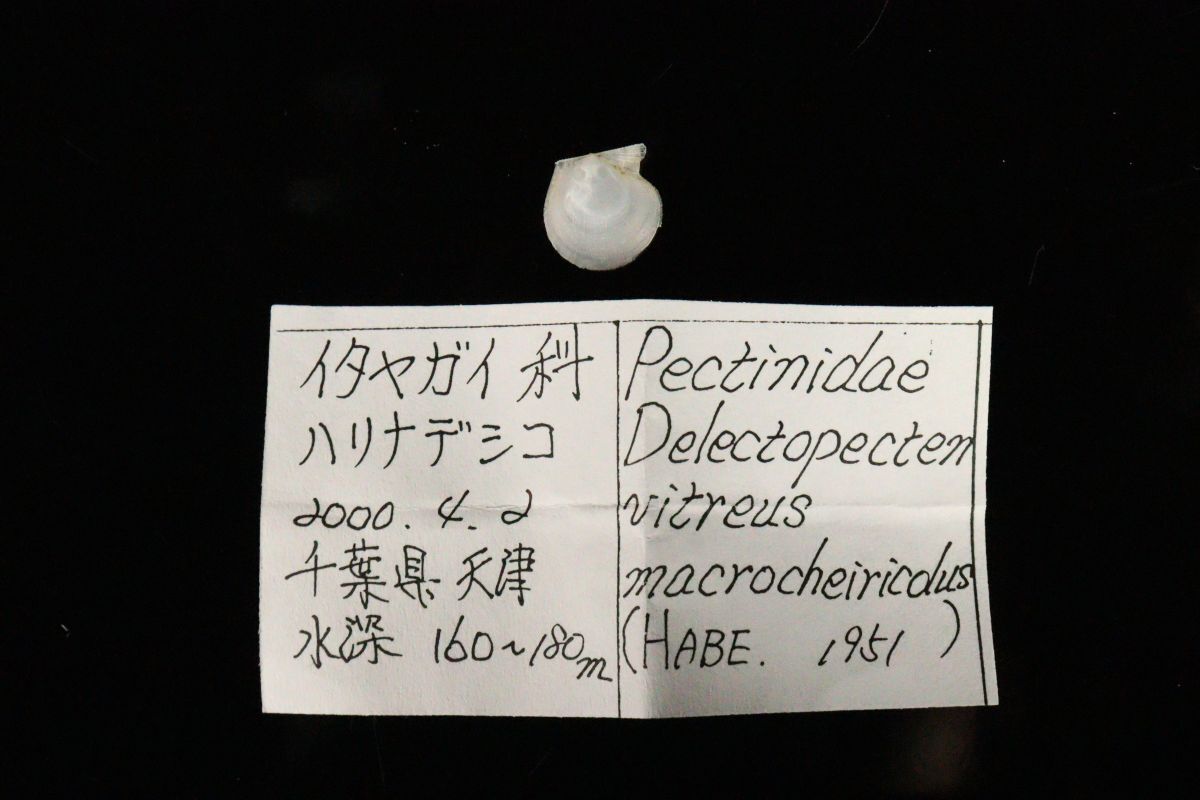 イタヤガイ科
ハリナデシコ
2000.4.2
千葉県天津
水深 160~180m
Pectinidae
Delectopecten
vitreus
macrocheiricolus
(HABE. 1951)